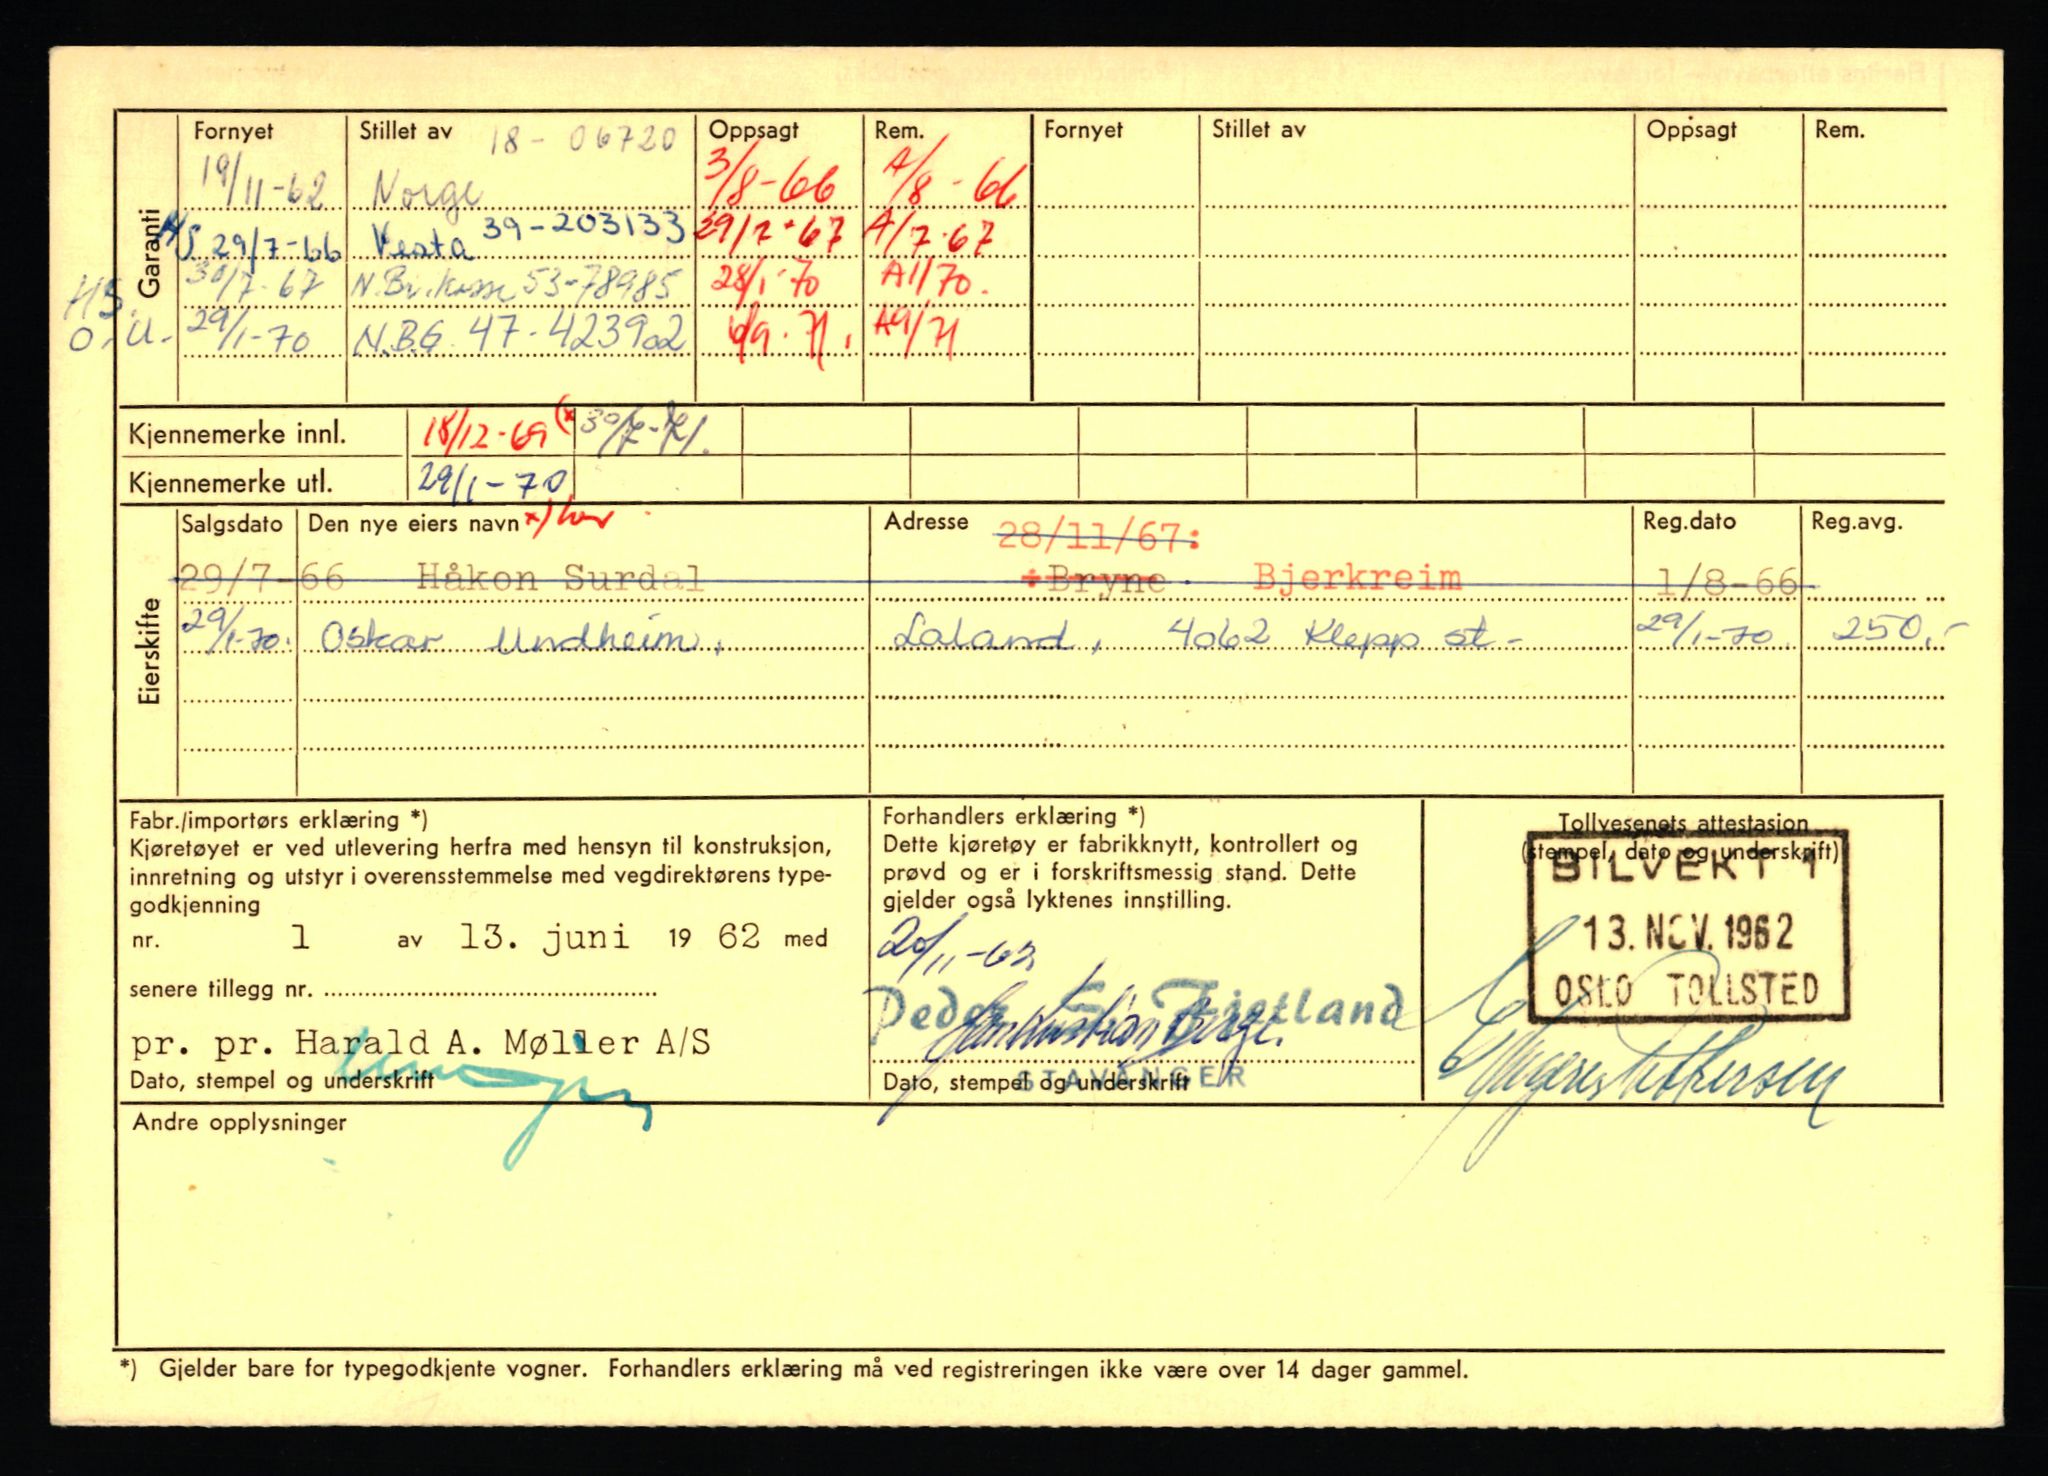 Fornyet Stillet av 18-06720 Oppsagt Rem. Fornyet Stillet av Oppsagt Rem.
Garanti
19/11-62 Norge 3/8-66 A/8-66
29/7-66 Vesta 39-203133 29/7-67 A/7-67
HS. 30/7-67 N.Bi.kasse 53-78985 28/1-70 A1/70.
O.U. 29/1-70 N.B.G. 47-423902 6/9-71. A9/71
Kjennemerke innl. 18/12-69 (x 30/7-71.
Kjennemerke utl. 29/1-70
Eierskifte
Salgsdato Den nye eiers navn x) Adresse 28/11/67: Reg.dato Reg.avg.
29/7-66 Håkon Surdal ÷Bryne. Bjerkreim 1/8-66
29/1-70. Oskar Undheim. Laland, 4062 Klepp st- 29/1-70. 250,-
Fabr./importørs erklæring *)
Kjøretøyet er ved utlevering herfra med hensyn til konstruksjon,
innretning og utstyr i overensstemmelse med vegdirektørens type-
godkjenning
nr. 1 av 13. juni 1962 med
senere tillegg nr.
pr. pr. Harald A. Møller A/S
Dato, stempel og underskrift
Forhandlers erklæring *)
Dette kjøretøy er fabrikknytt, kontrollert og
prøvd og er i forskriftsmessig stand. Dette
gjelder også lyktenes innstilling.
20/11-62
Peder Fjetland
STAVANGER
Dato, stempel og underskrift
Tollvesenets attestasjon
(stempel, dato og underskrift)
BILVEKT 1
13. NOV. 1962
OSLO TOLLSTED
Andre opplysninger
*) Gjelder bare for typegodkjente vogner. Forhandlers erklæring må ved registreringen ikke være over 14 dager gammel.